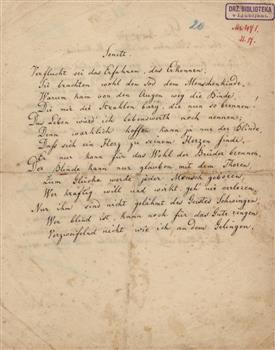 20
DRŽ. BIBLIOTEKA
v Ljubljani.
Sonett.
Verflucht sei das Erfahren, das Erkennen,
Sie brachten wohl den Tod dem Menschenkinde,
Warum kam von den Augen weg die Binde
Die mir die Strahlen barg, die nun so brennen!
Das Leben würd' ich lebenswerth noch nennen;
Denn wahrlich hoffen kann ja nur der Blinde,
Daß sich ein Herz zu seinem Herzen finde,
Er nur kann für das Wohl der Brüder brennen.
Der Blinde kann nur glauben mit dem Thoren
Zum Glücke werde jeder Mensch geboren,
Wer kräftig will und wirkt geh' nie verloren;
Nur ihm sind nicht gelähmt des Geistes Schwingen
Wer blind ist, kann noch für das Gute ringen
Verzweifelnd nicht wie ich an dem Gelingen.